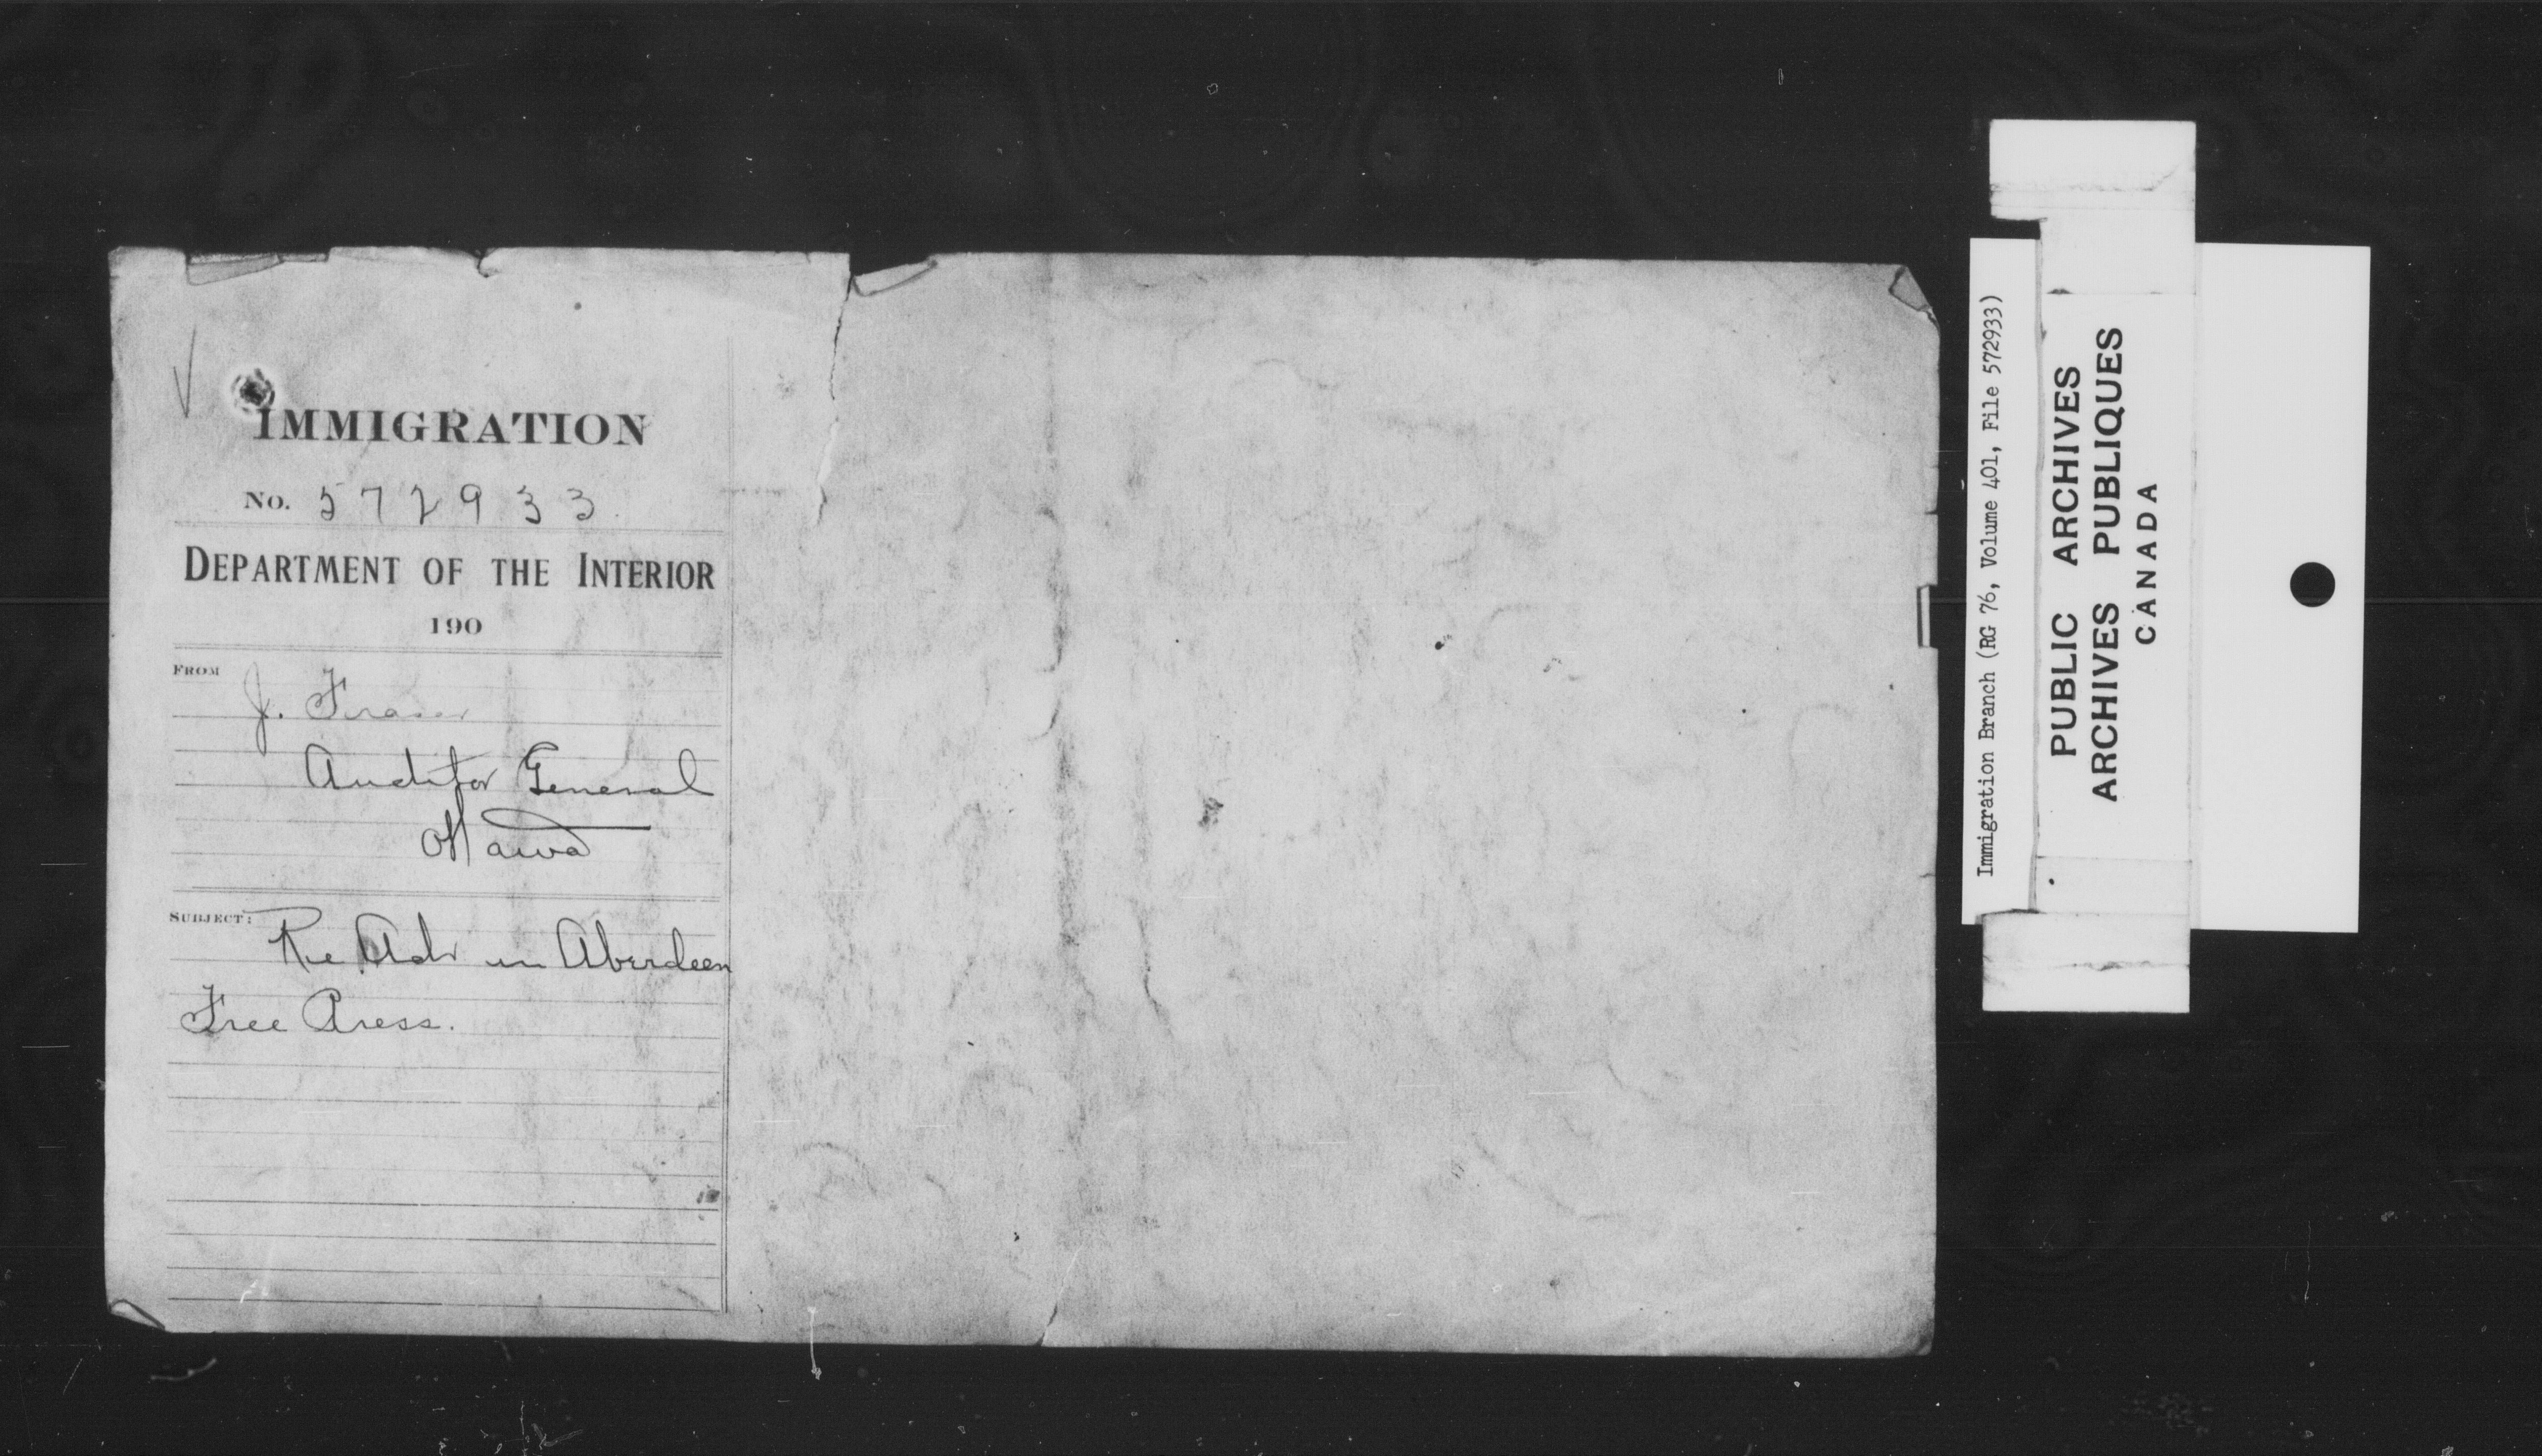 IMMIGRATION
No. 572933
DEPARTMENT OF THE INTERIOR
190
FROM
J. Fraser
Auditor General
Ottawa
SUBJECT:
Re Adv in Aberdeen
Free Press.
Immigration Branch (RG 76, Volume 401, File 572933)
PUBLIC ARCHIVES
ARCHIVES PUBLIQUES
CANADA